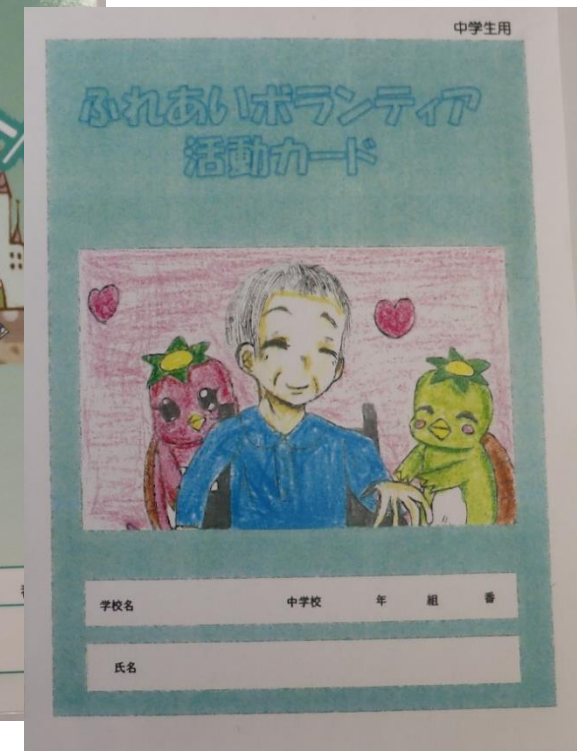 中学生用
ふれあいボランティア
活動カード
学校名 中学校 年 組 番
氏名